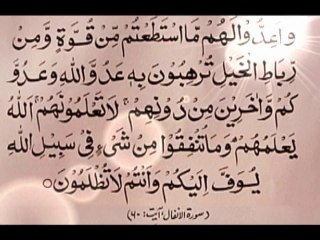 وَاَعِدُّوْا لَهُمْ مَّا اسْتَطَعْتُمْ مِّنْ قُوَّةٍ وَّمِنْ
رِّبَاطِ الْخَيْلِ تُرْهِبُوْنَ بِهٖ عَدُوَّ اللّٰهِ وَعَدُوَّ
كُمْ وَاٰخَرِيْنَ مِنْ دُوْنِهِمْ ۚ لَا تَعْلَمُوْنَهُمْ ۚ اَللّٰهُ
يَعْلَمُهُمْ ؕ وَمَا تُنْفِقُوْا مِنْ شَيْءٍ فِيْ سَبِيْلِ اللّٰهِ
يُوَفَّ اِلَيْكُمْ وَاَنْتُمْ لَا تُظْلَمُوْنَ ○
(سورة الانفال، آیت: ۶۰)